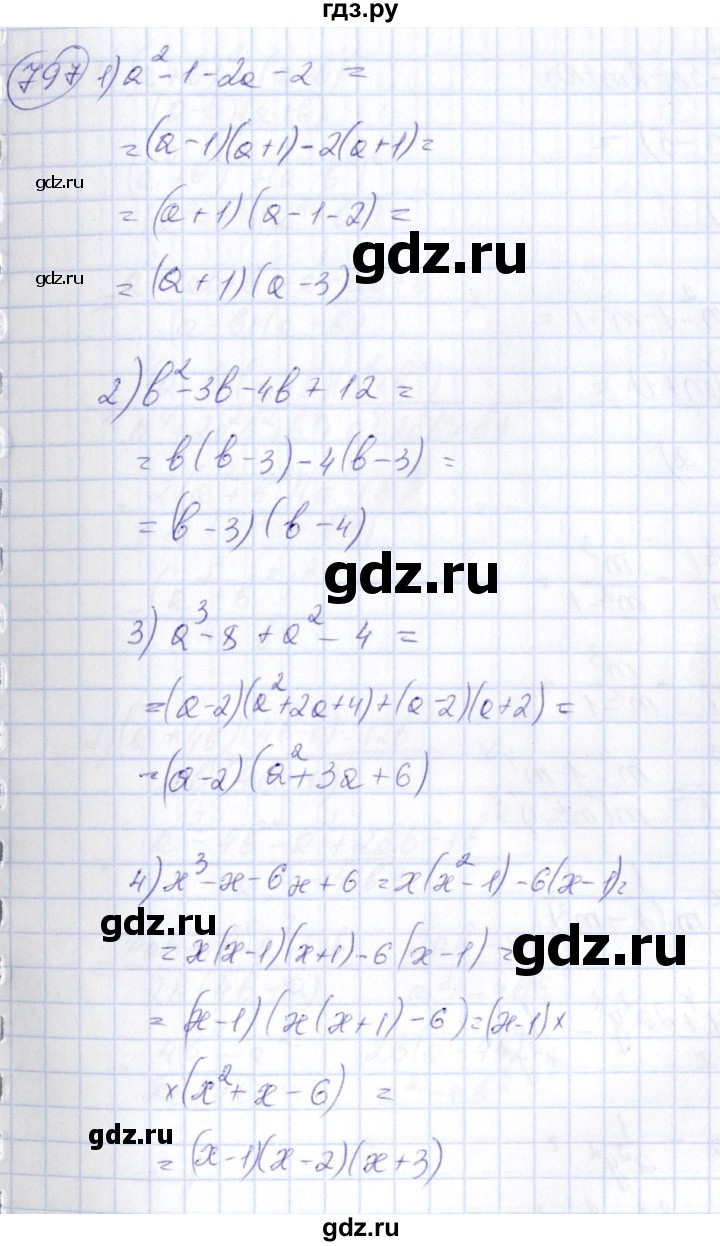 гдз.ру
797 1) a² - 1 - 2a - 2 =
= (a - 1)(a + 1) - 2(a + 1) =
gdz.ru
= (a + 1)(a - 1 - 2) =
gdz.ru
gdz.ru
= (a + 1)(a - 3)
2) b² - 3b - 4b + 12 =
= b(b - 3) - 4(b - 3) =
= (b - 3)(b - 4)
gdz.ru
3) a³ - 8 + a² - 4 =
= (a - 2)(a² + 2a + 4) + (a - 2)(a + 2) =
= (a - 2)(a² + 3a + 6)
4) x³ - x - 6x + 6 = x(x² - 1) - 6(x - 1) =
gdz.ru
gdz.ru
= x(x - 1)(x + 1) - 6(x - 1) =
= (x - 1)(x(x + 1) - 6) = (x - 1) ×
× (x² + x - 6) =
gdz.ru
= (x - 1)(x - 2)(x + 3)
gdz.ru